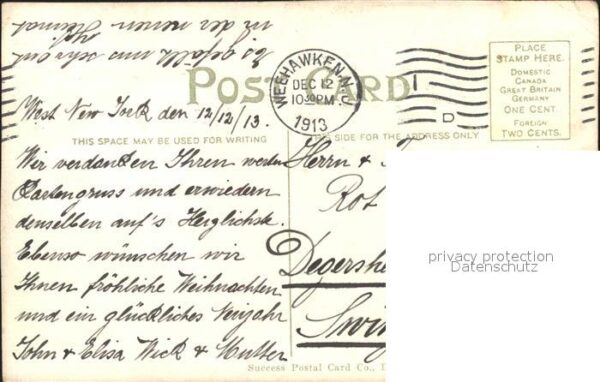 Es gefällt uns sehr gut
in der neuen Heimat
POST CARD
WEEHAWKEN, N.J.
DEC 12
10 30 PM
1913
1
D
PLACE
STAMP HERE.
DOMESTIC
CANADA
GREAT BRITAIN
GERMANY
ONE CENT.
FOREIGN
TWO CENTS.
West New York den 12/12/13.
THIS SPACE MAY BE USED FOR WRITING
THIS SIDE FOR THE ADDRESS ONLY
Wir verdanken Ihren werten
Kartengruss und erwiedern
denselben auf's Herzlichste.
Ebenso wünschen wir
Ihnen fröhliche Weihnachten
und ein glückliches Neujahr
John & Elisa Wick & Mutter
Herrn & F
Rot
Degershe
Swi
privacy protection
Datenschutz
Success Postal Card Co.,